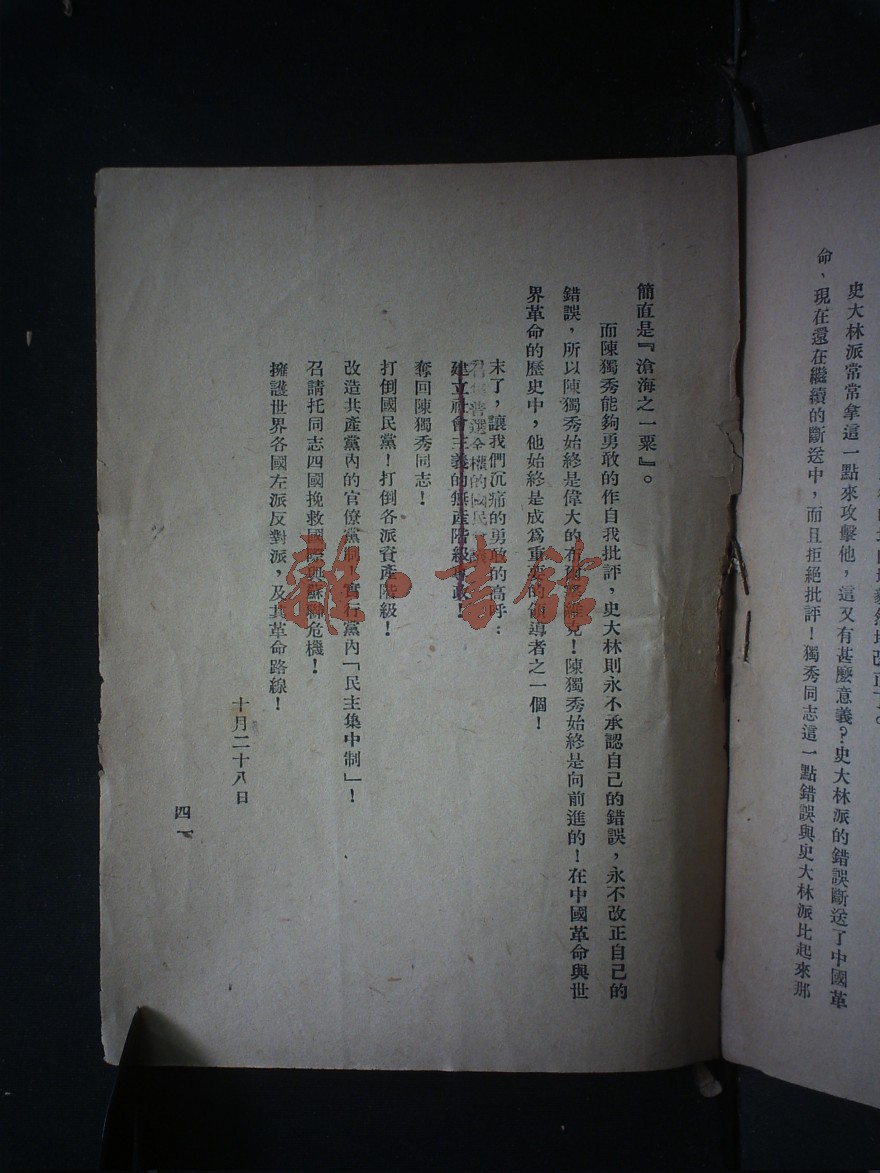 史大林派常常拿這一點來攻擊他，這又有甚麽意義？史大林派的錯誤斷送了中國革
命，現在還在繼續的斷送中，而且拒絕批評！獨秀同志這一點錯誤與史大林派比起來那
簡直是『滄海之一粟』。
而陳獨秀能夠勇敢的作自我批評，史大林則永不承認自己的錯誤，永不改正自己的
錯誤，所以陳獨秀始終是偉大的布爾塞維克！陳獨秀始終是向前進的！在中國革命與世
界革命的歷史中，他始終是成爲重要的領導者之一個！
末了，讓我們沉痛的勇敢的高呼：
召集普選全權的國民
建立社會主義的無產階級專政！
奪回陳獨秀同志！
打倒國民黨！打倒各派資產階級！
改造共產黨內的官僚黨制！實行黨內「民主集中制」！
召請托同志回國挽救國際與蘇聯危機！
擁護世界各國左派反對派，及其革命路線！
十月二十八日
四一
雜·書館